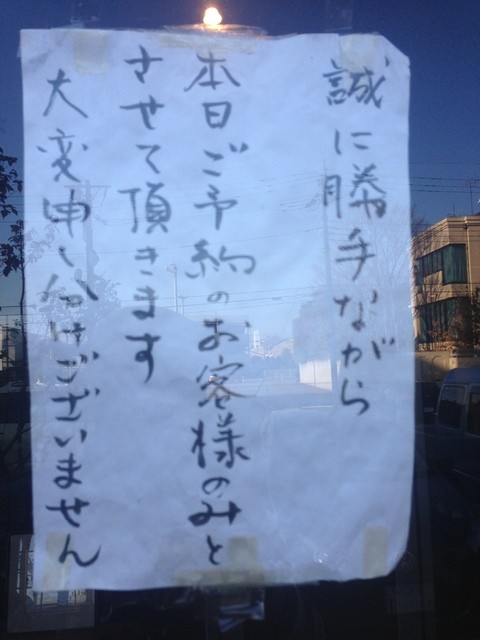 誠に勝手ながら
本日ご予約のお客様のみと
させて頂きます
大変申し分けございません